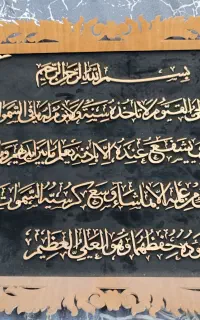 بسم الله الرحمن الرحيم
الحي القيوم لا تأخذه سنة ولا نوم له ما في السموات
يشفع عنده إلا بإذنه يعلم ما بين أيديهم و
علمه إلا بما شاء وسع كرسيه السموات
وده حفظهما وهو العلي العظيم